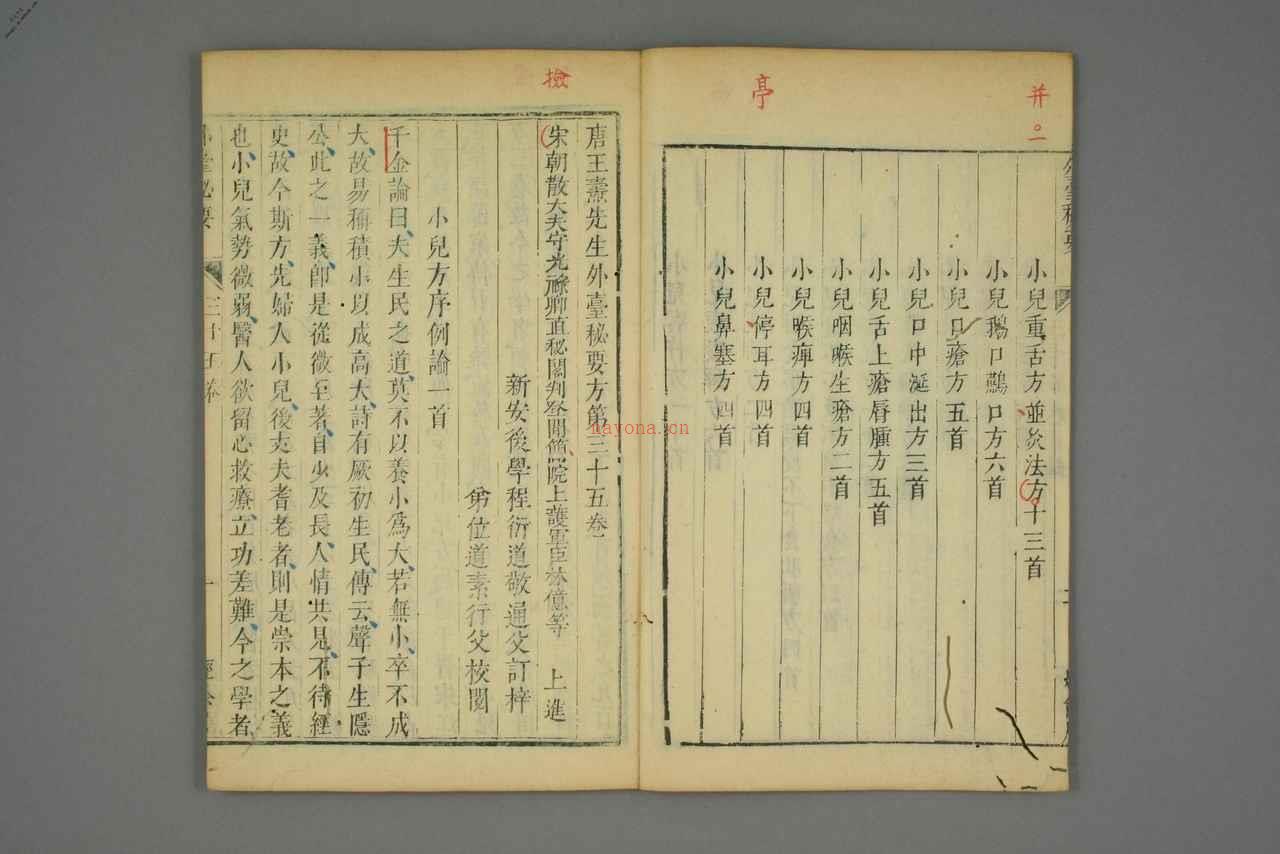 并
亭
小兒重舌方並灸法方十三首
小兒鵝口鷰口方六首
小兒口瘡方五首
小兒口中涎出方三首
小兒舌上瘡唇腫方五首
小兒咽喉生瘡方二首
小兒喉痹方四首
小兒停耳方四首
小兒鼻塞方四首
檢
唐王燾先生外臺秘要方第三十五卷
宋朝散大夫守光祿卿直秘閣判登聞簡院上護軍臣林億等 上進
新安後學程衍道敬通父訂梓
弟位道素行父校閱
小兒方序例論一首
千金論曰夫生民之道莫不以養小爲大若無小卒不成
大故易稱積小以成高大詩有厥初生民傳云聲子生隱
公此之一義卽是從微至著自少及長人情共見不待經
史故今斯方先婦人小兒後丈夫耆老者則是崇本之義
也小兒氣勢微弱醫人欲留心救療立功差難今之學者
三十五卷
一
nayona.cn